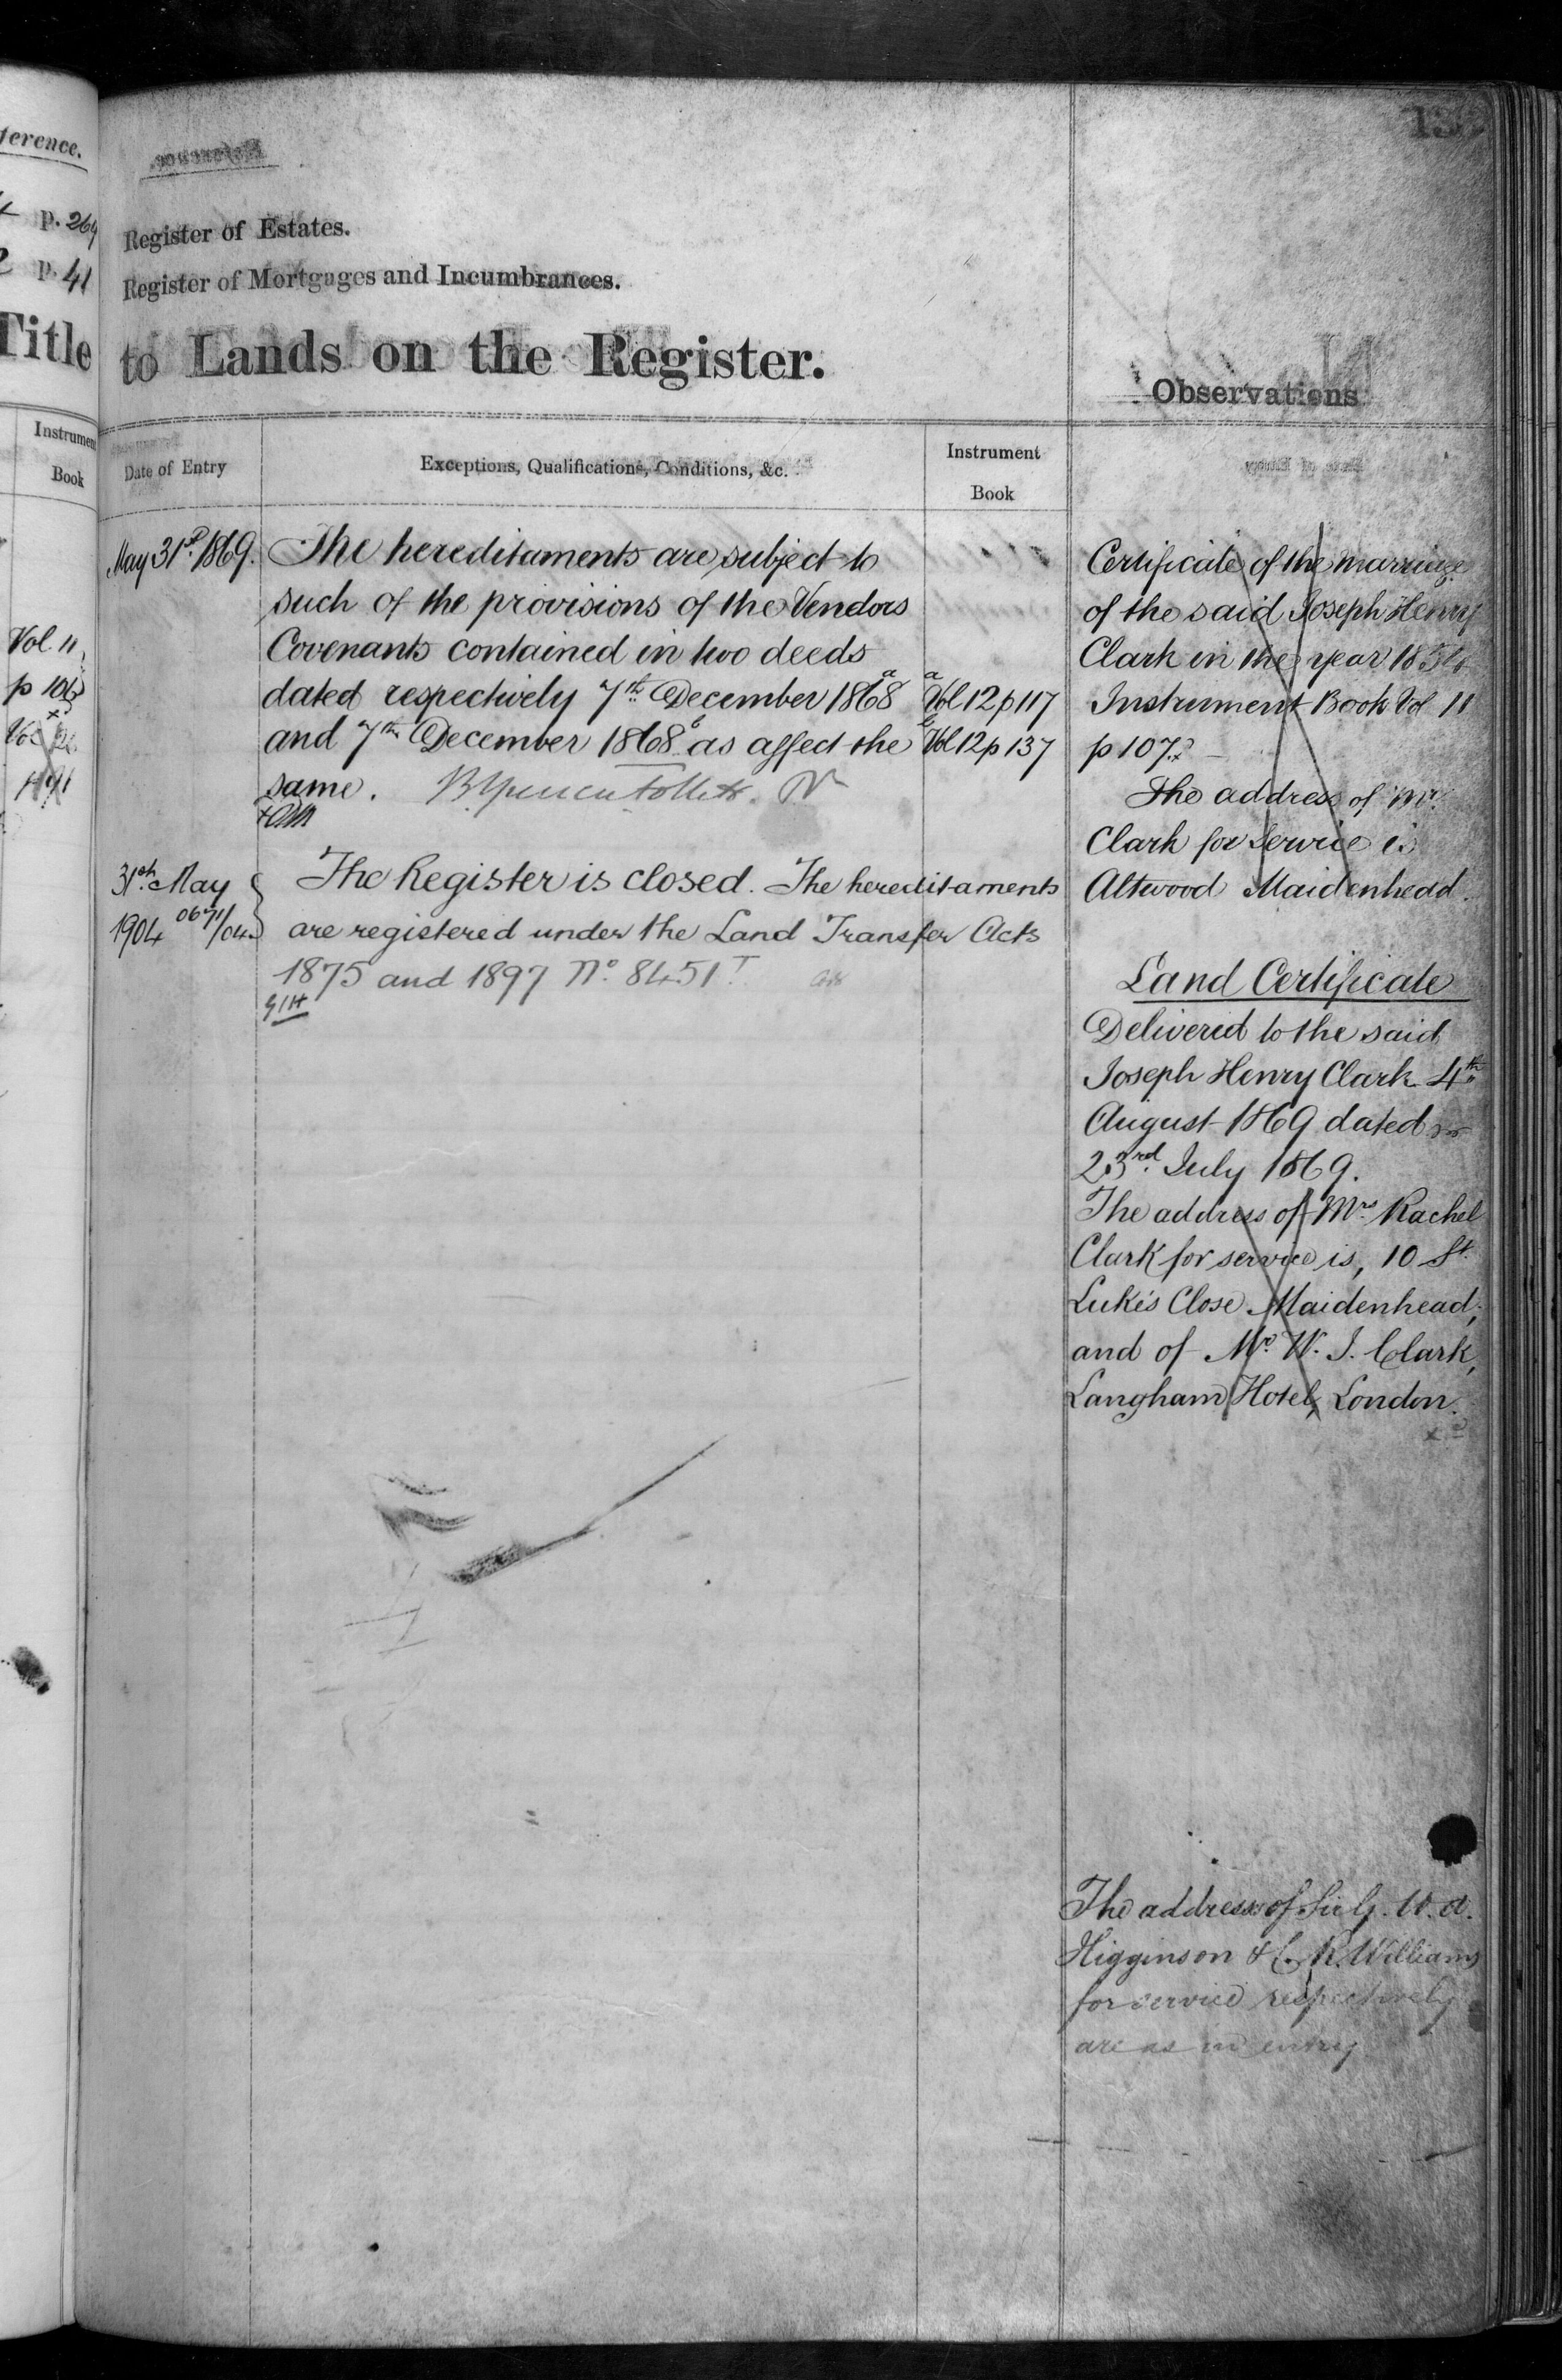 ference.
p. 264
p. 41
Title
Instrument
Book
Vol. 11
p 106
Register of Estates.
Register of Mortgages and Incumbrances.
to Lands on the Register.
Date of Entry
Exceptions, Qualifications, Conditions, &c.
Instrument
Book
May 31st 1869.
The hereditaments are subject to
such of the provisions of the Vendors
Covenants contained in two deeds
dated respectively 7th December 1868 a
and 7th December 1868 b as affect the
same.
a Vol 12 p 117
b Vol 12 p 137
31st May
1904 0671/04
The Register is closed. The hereditaments
are registered under the Land Transfer Acts
1875 and 1897 No. 8451 T
Observations
Certificate of the marriage
of the said Joseph Henry
Clark in the year 185
Instrument Book Vol 11
p 107.
The address of Mr.
Clark for service is
Altwood Maidenhead.
Land Certificate
Delivered to the said
Joseph Henry Clark 4th
August 1869 dated
23rd July 1869.
The address of Mrs. Rachel
Clark for service is, 10 St.
Luke's Close Maidenhead,
and of Mr. W. J. Clark,
Langham Hotel, London.
The address of Sir G. W. A.
Higginson & C. R. Williams
for service respectively
are as in entry